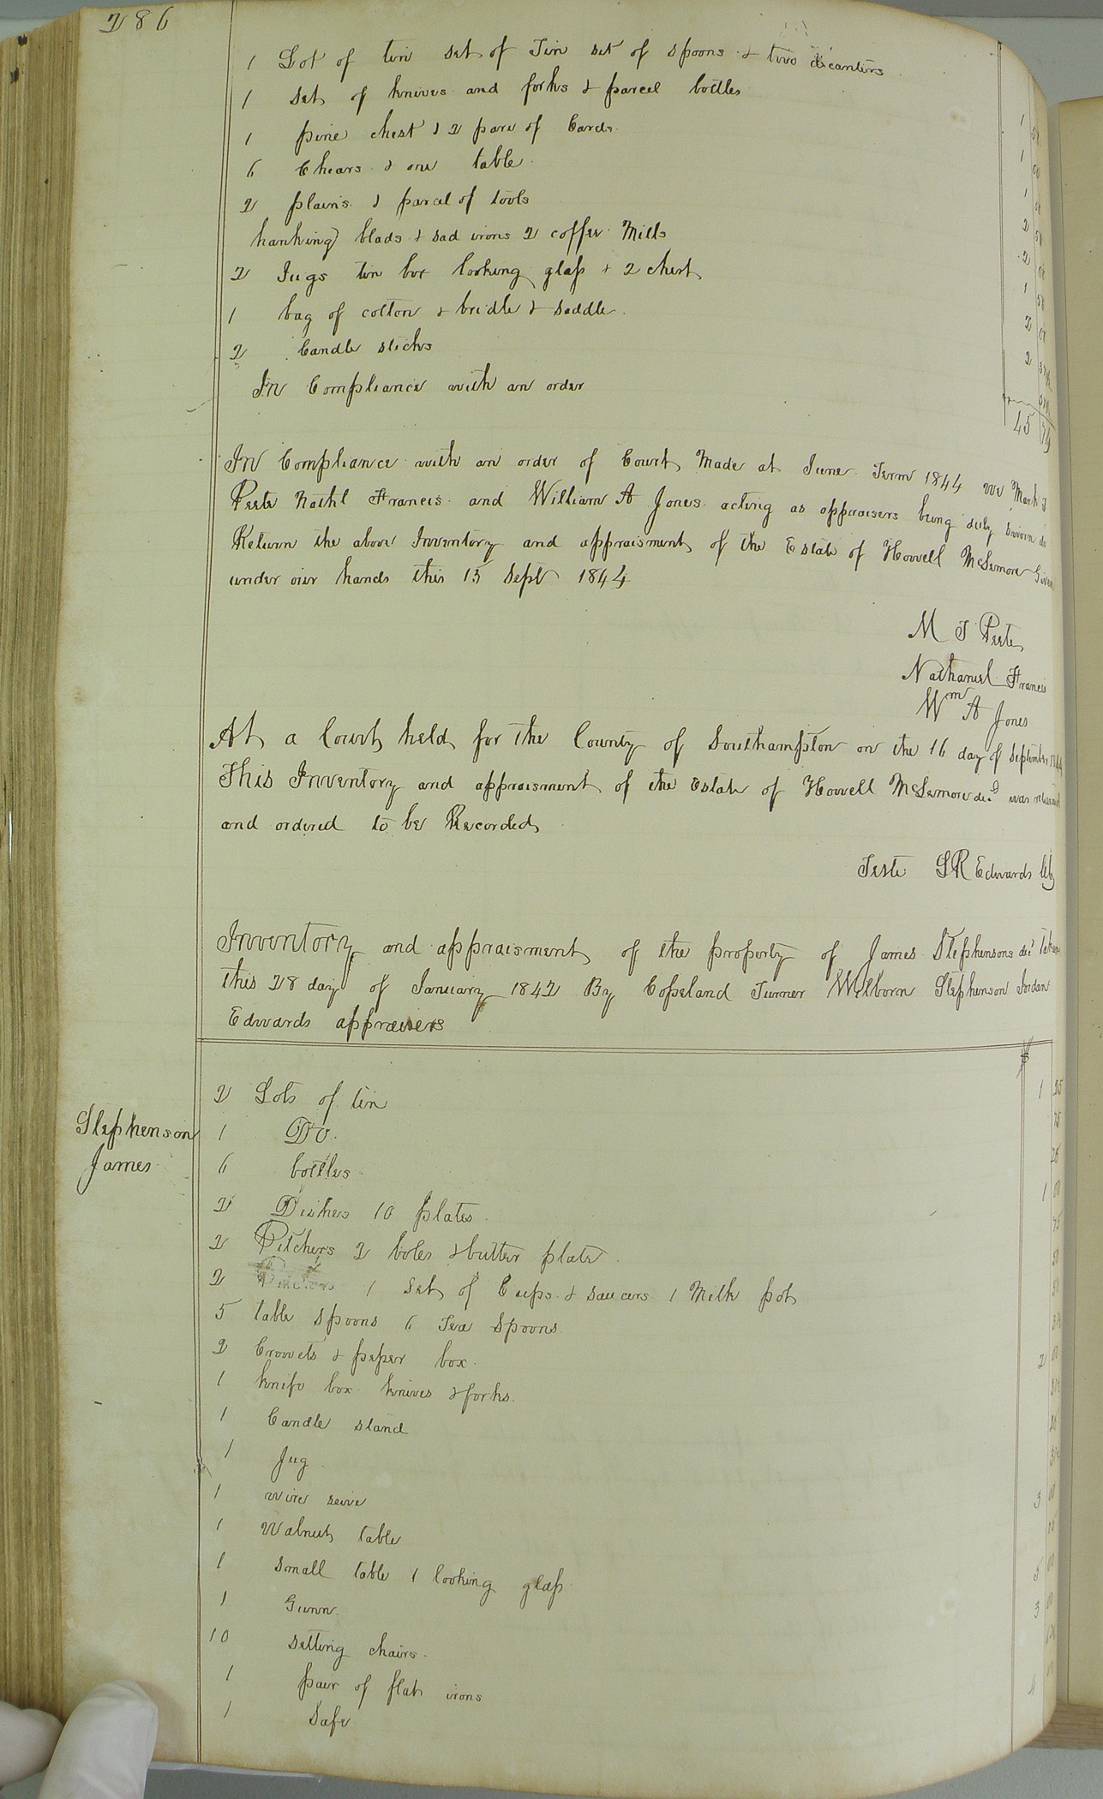 286
1 Lot of tin set of Tin set of spoons & two decanters
1 set of knives and forks & parcel bottles
1 pine chest & 2 pare of Cards 1
6 Chears & one table 1
2 plains & parcel of tools 1
hanking blads & sad irons 2 coffee Mills 2
2 Jugs tin box looking glass & 2 chest 2
1 bag of cotton & bridle & saddle 1
2 Candle sticks 2
In Compliance with an order 2
45
In Compliance with an order of Court Made at June Term 1844 we
Peete Nathl Francis and William A Jones acting as appraisers being duly sworn do
Return the above Inventory and appraisment of the Estate of Howell McLemore Given
under our hands this 15 Sept 1844
M T Peete
Nathaniel Francis
Wm A Jones
At a Court held for the County of Southampton on the 16 day of September 1844
This Inventory and appraisment of the Estate of Howell McLemore decd was returned
and ordered to be Recorded
Teste LR Edwards Clk
Inventory and appraisment of the property of James Stephensons decd Taken
this 28 day of January 1842 By Copeland Turner Welborn Stephenson Jordan
Edwards appraisers
$
2 Lots of tin 1 25
Stephenson James
1 Do. 75
6 bottles 25
2 Dishes 10 plates 1 00
2 Pitchers 2 boles & butter plate 75
2 1 set of Cups & saucers 1 Milk pot 50
5 table spoons 6 Tea Spoons
2 Crowets & peper box
1 knife box knives & forks 2 00
1 Candle stand
1 Jug
1 wire seive
1 Walnut table 3 00
1 small table 1 looking glass
1 Gunn 5 00
10 setting chairs 3 00
1 pair of flat irons
1 Safe